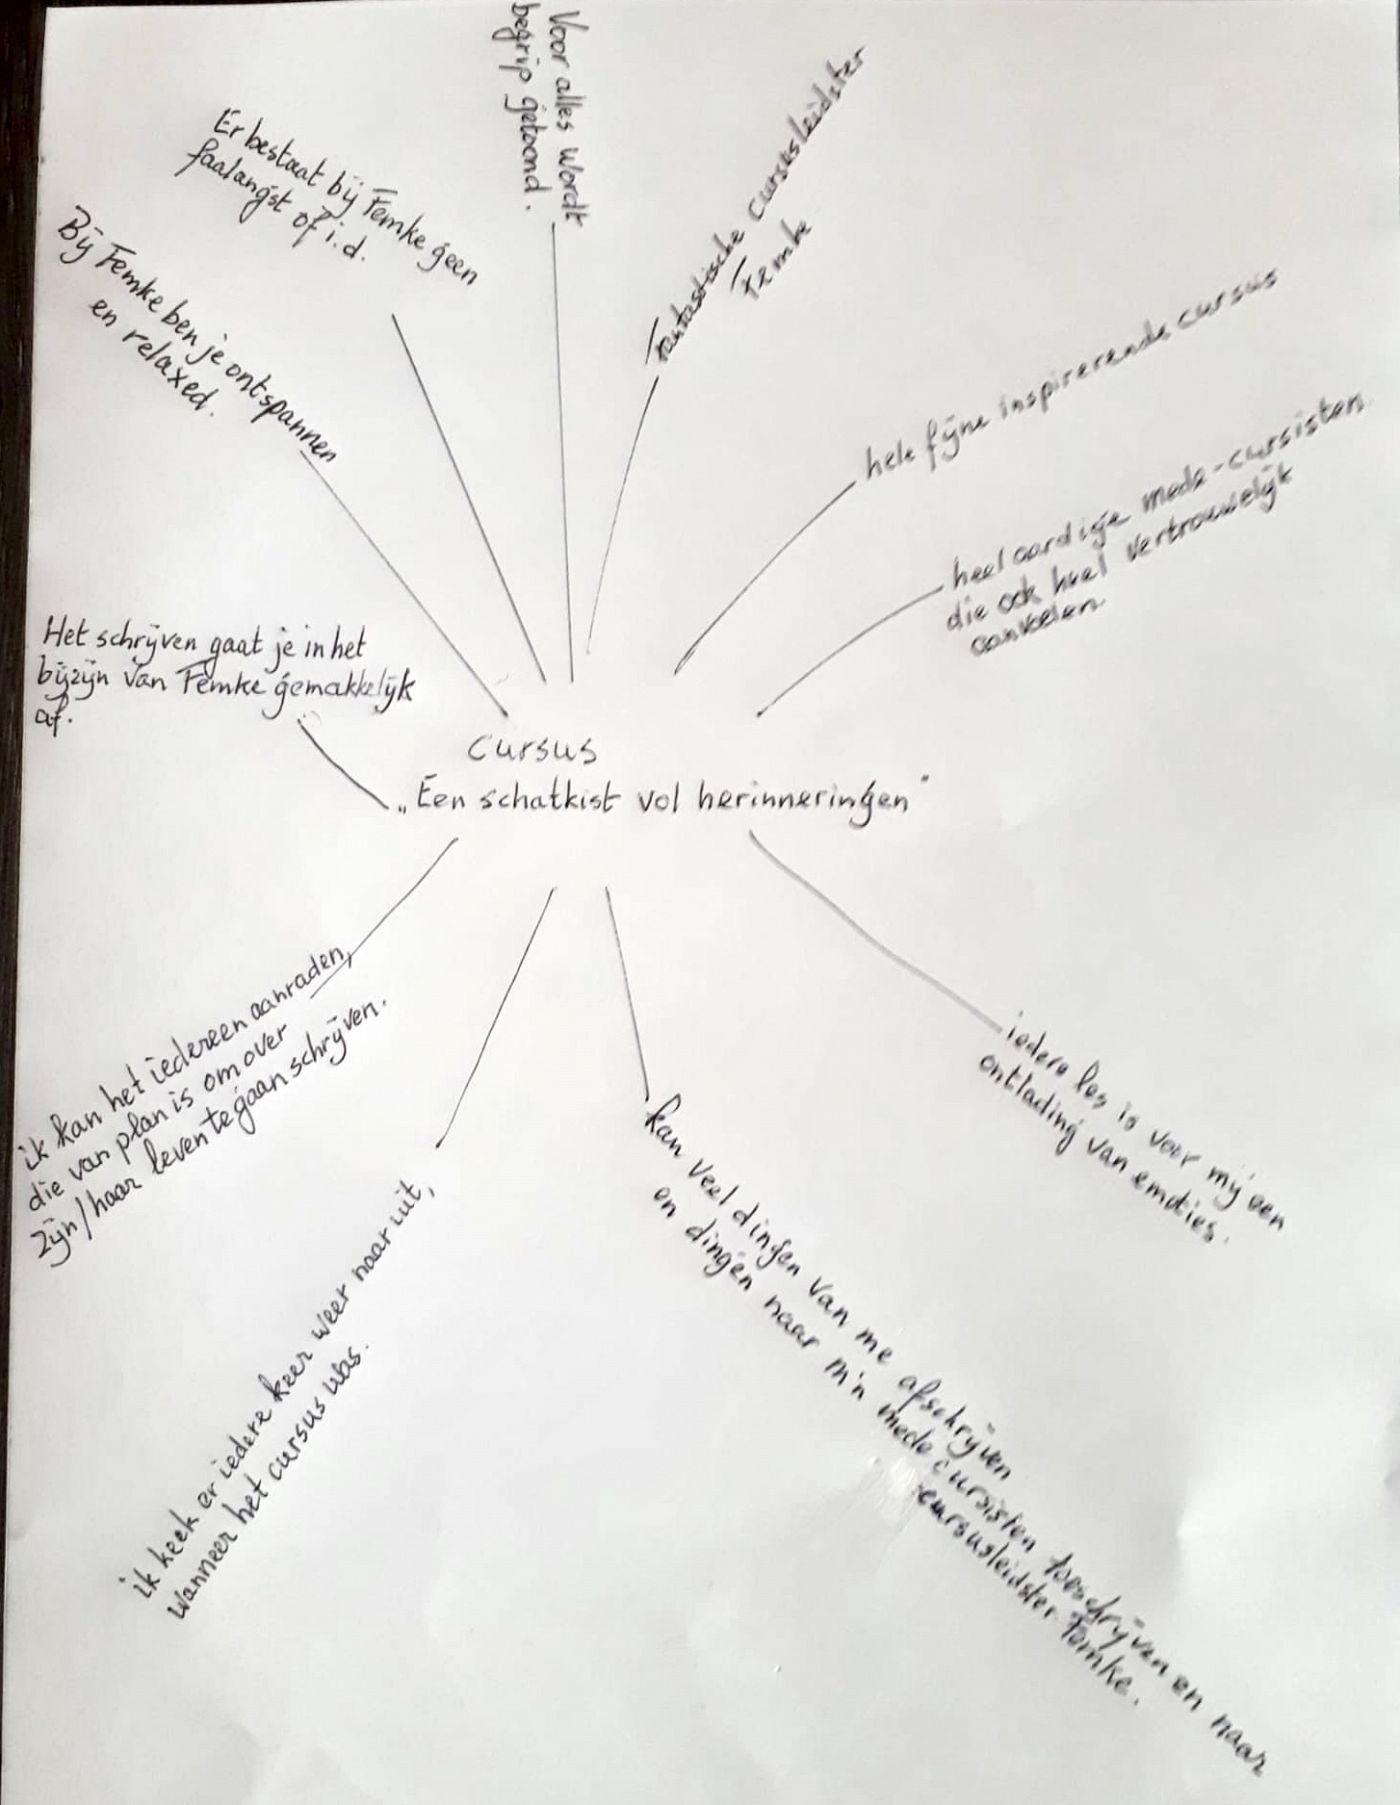 Voor alles wordt
begrip getoond.
Fantastische cursusleidster
Femke
hele fijne inspirerende cursus
heel aardige mede-cursisten
die ook heel vertrouwelijk
aanvoelen.
Er bestaat bij Femke geen
faalangst of i.d.
Bij Femke ben je ontspannen
en relaxed.
Het schrijven gaat je in het
bijzijn van Femke gemakkelijk
af.
Cursus
„Een schatkist vol herinneringen"
iedere les is voor mij een
ontlading van emoties.
kan veel dingen van me afschrijven
en dingen naar m'n mede cursisten toeschrijven en naar
cursusleidster Femke.
ik keek er iedere keer weer naar uit,
wanneer het cursus was.
ik kan het iedereen aanraden,
die van plan is om over
zijn/haar leven te gaan schrijven.